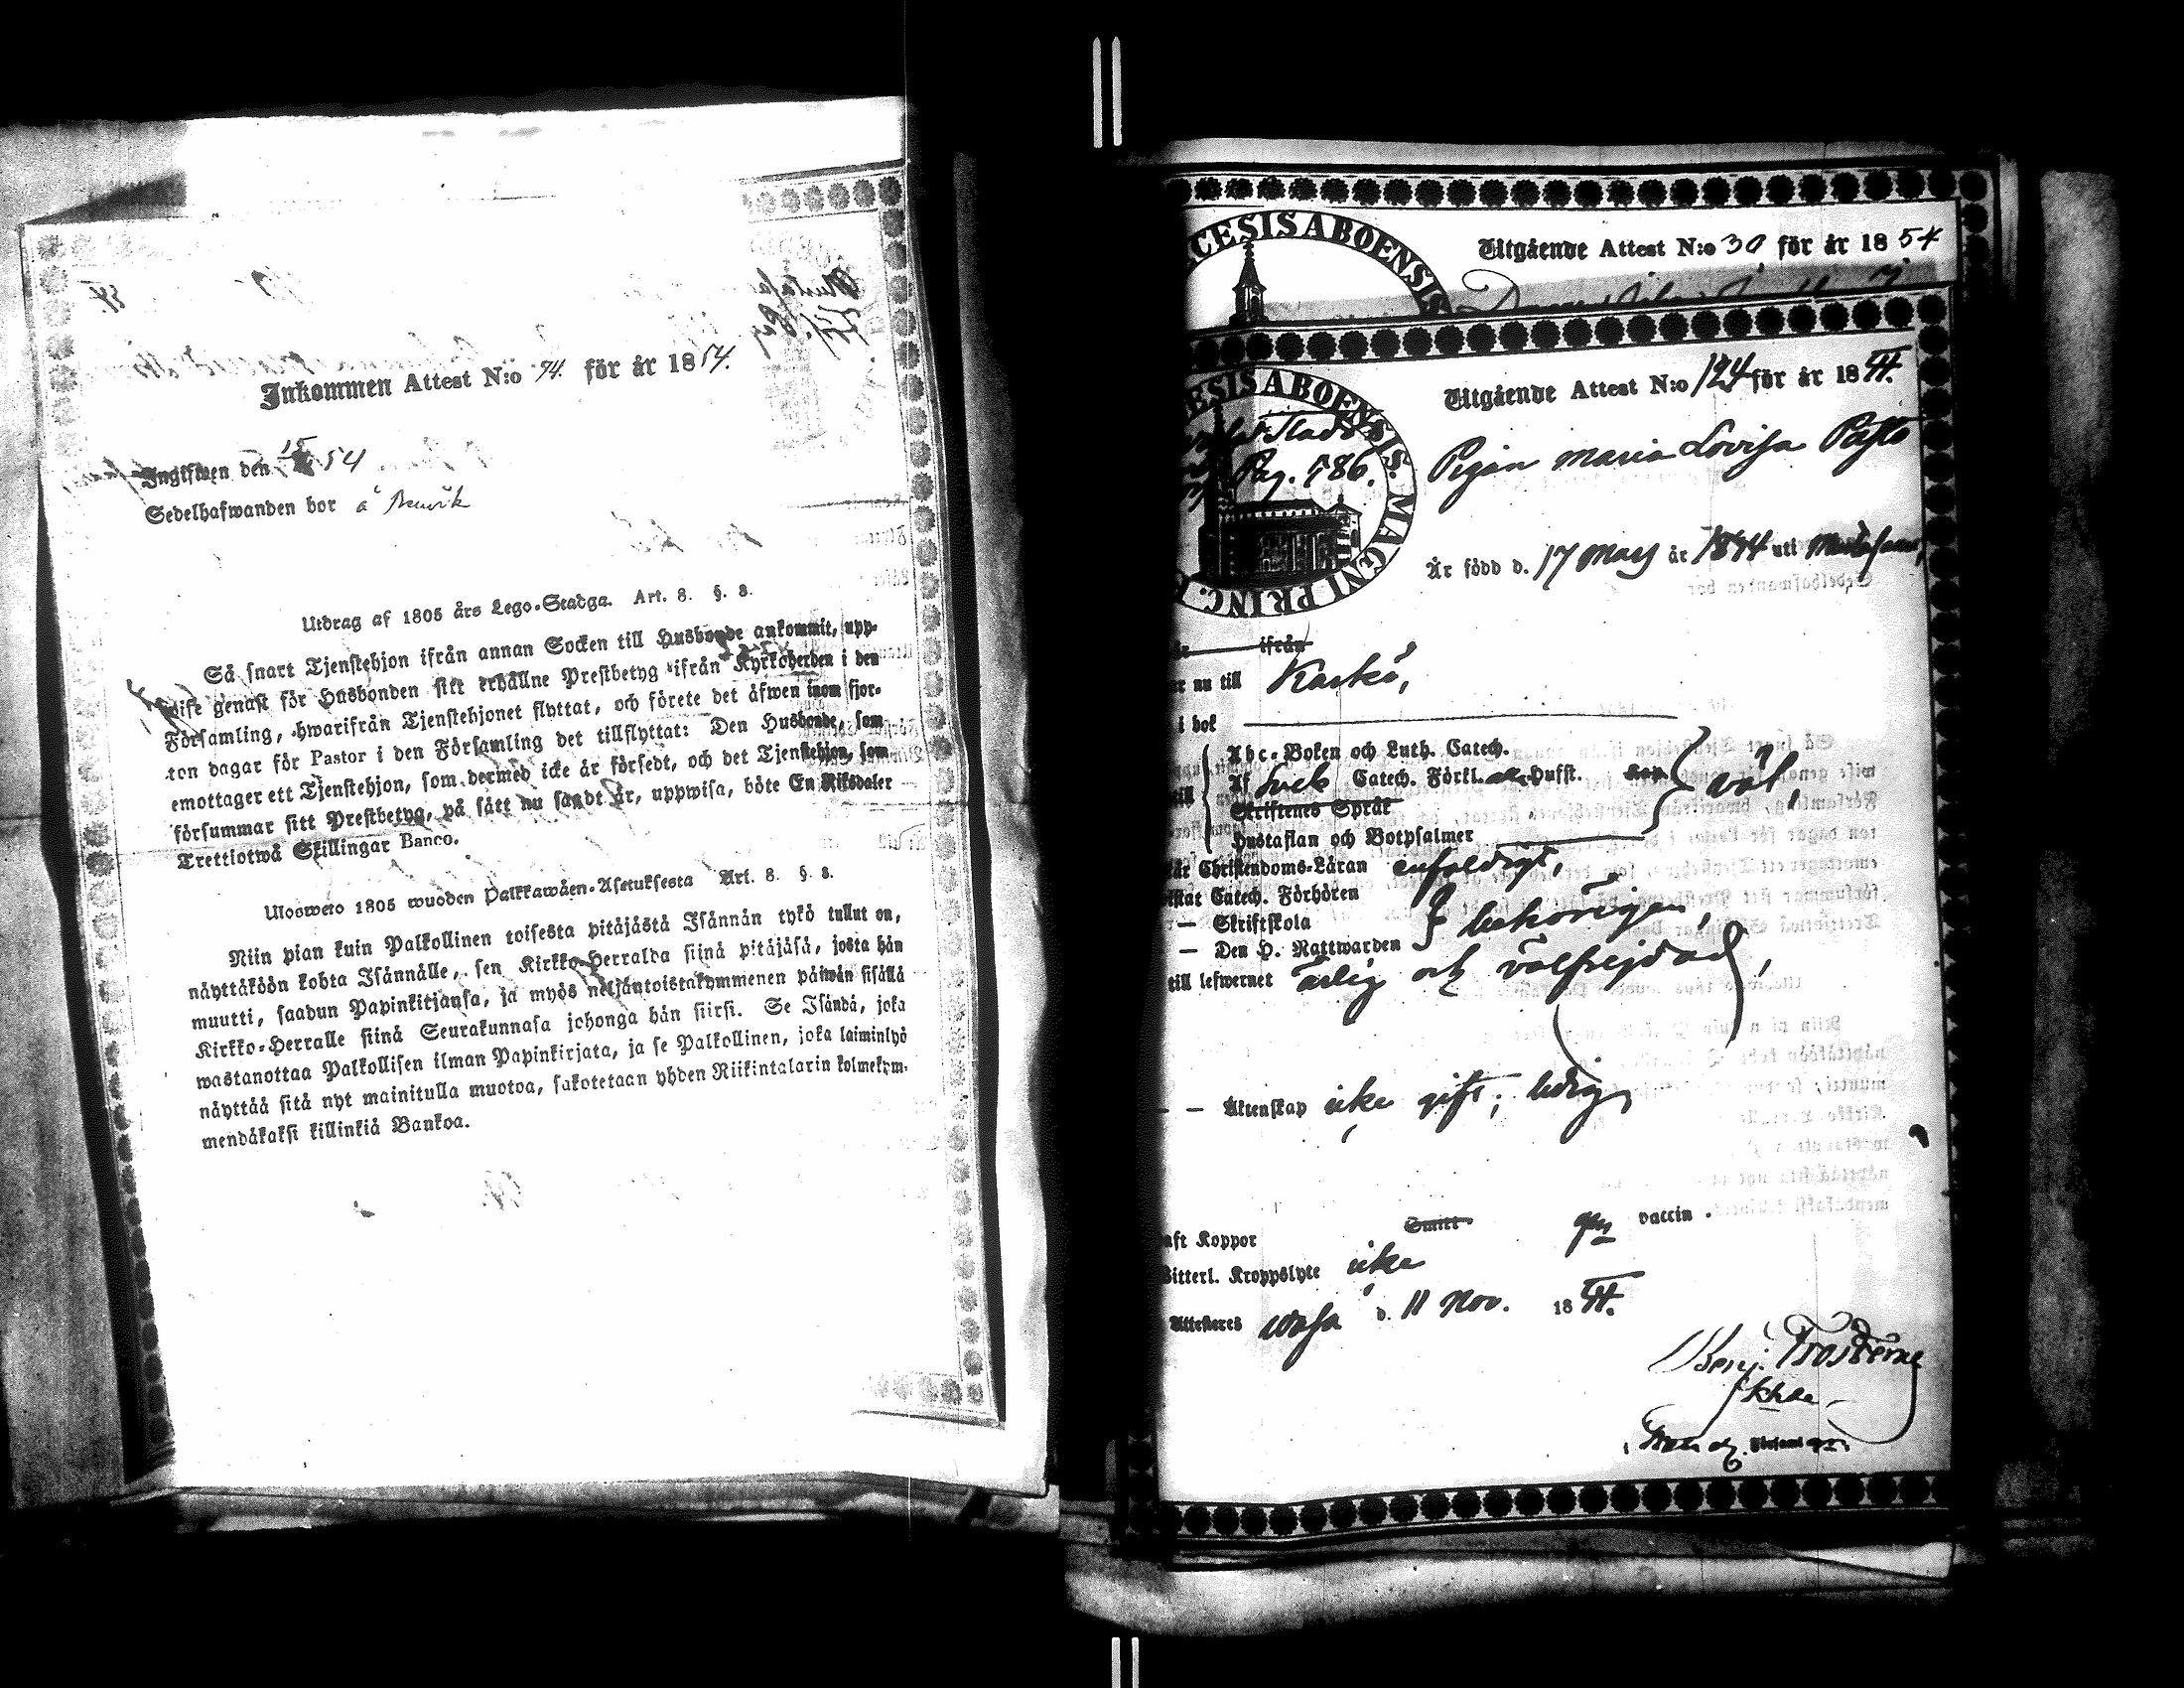 Inkommen Attest N:o 74. för år 1854.
Ingifwen den 54
Sedelhafwanden bor å
Utdrag af 1805 års Lego-Stadga. Art. 8. §. 8.
Så snart Tjenstehjon ifrån annan Socken till Husbonde ankommit, upp-
wise genast för Husbonden sitt erhållne Prestbetyg ifrån Kyrkoherden i den
Församling, hwarifrån Tjenstehjonet flyttat, och förete det äfwen inom fjor-
ton dagar för Pastor i den Församling det tillflyttat: Den Husbonde, som
emottager ett Tjenstehjon, som dermed icke är försedt, och det Tjenstehjon, som
försummar sitt Prestbetyg, på sätt nu sagdt är, uppwisa, böte En Riksdaler
Trettiotwå Skillingar Banco.
Ulosweto 1805 wuoden Palkkawäen-Asetuksesta Art. 8. §. 8.
Niin pian kuin Palkollinen toisesta pitäjästä Isännän tykö tullut on,
näyttäköön kohta Isännälle, sen Kirkko-Herralda siinä pitäjäsä, josta hän
muutti, saadun Papinkirjansa, ja myös neljäntoistakymmenen päiwän sisällä
Kirkko-Herralle siinä Seurakunnasa johonga hän siirsi. Se Isändä, joka
wastanottaa Palkollisen ilman Papinkirjata, ja se Palkollinen, joka laiminlyö
näyttää sitä nyt mainitulla muotoa, sakotetaan yhden Riikintalarin kolmekym-
mendäkaksi killinkiä Bankoa.
CESIS ABOENSIS
Utgående Attest N:o 30 för år 1854
ESIS ABOENSIS. MAGNI PRINC.
Utgående Attest N:o 124 för år 1854.
Pag. 586.
Pigan Maria Lovisa
Är född d. 17 Mars år 1844 uti
ifrån
nu till Kaskö,
i bok
Abc-Boken och Luth. Catech.
Af Sveb. Catech. Förkl. Hufst. Kap. väl,
Skriftenes Språk
Hustaflan och Botpsalmer
Christendoms-Läran enfaldigt,
Catech. Förhören
— Skriftskola behörigen,
— Den H. Nattwarden
till lefwernet ärlig och välfrejdad,
— — Äktenskap icke gift; ledig,
haft Koppor Smitt gm vaccin.
Witterl. Kroppslyte icke
Attesteras Wasa d. 11 Nov. 1854.
Benj.